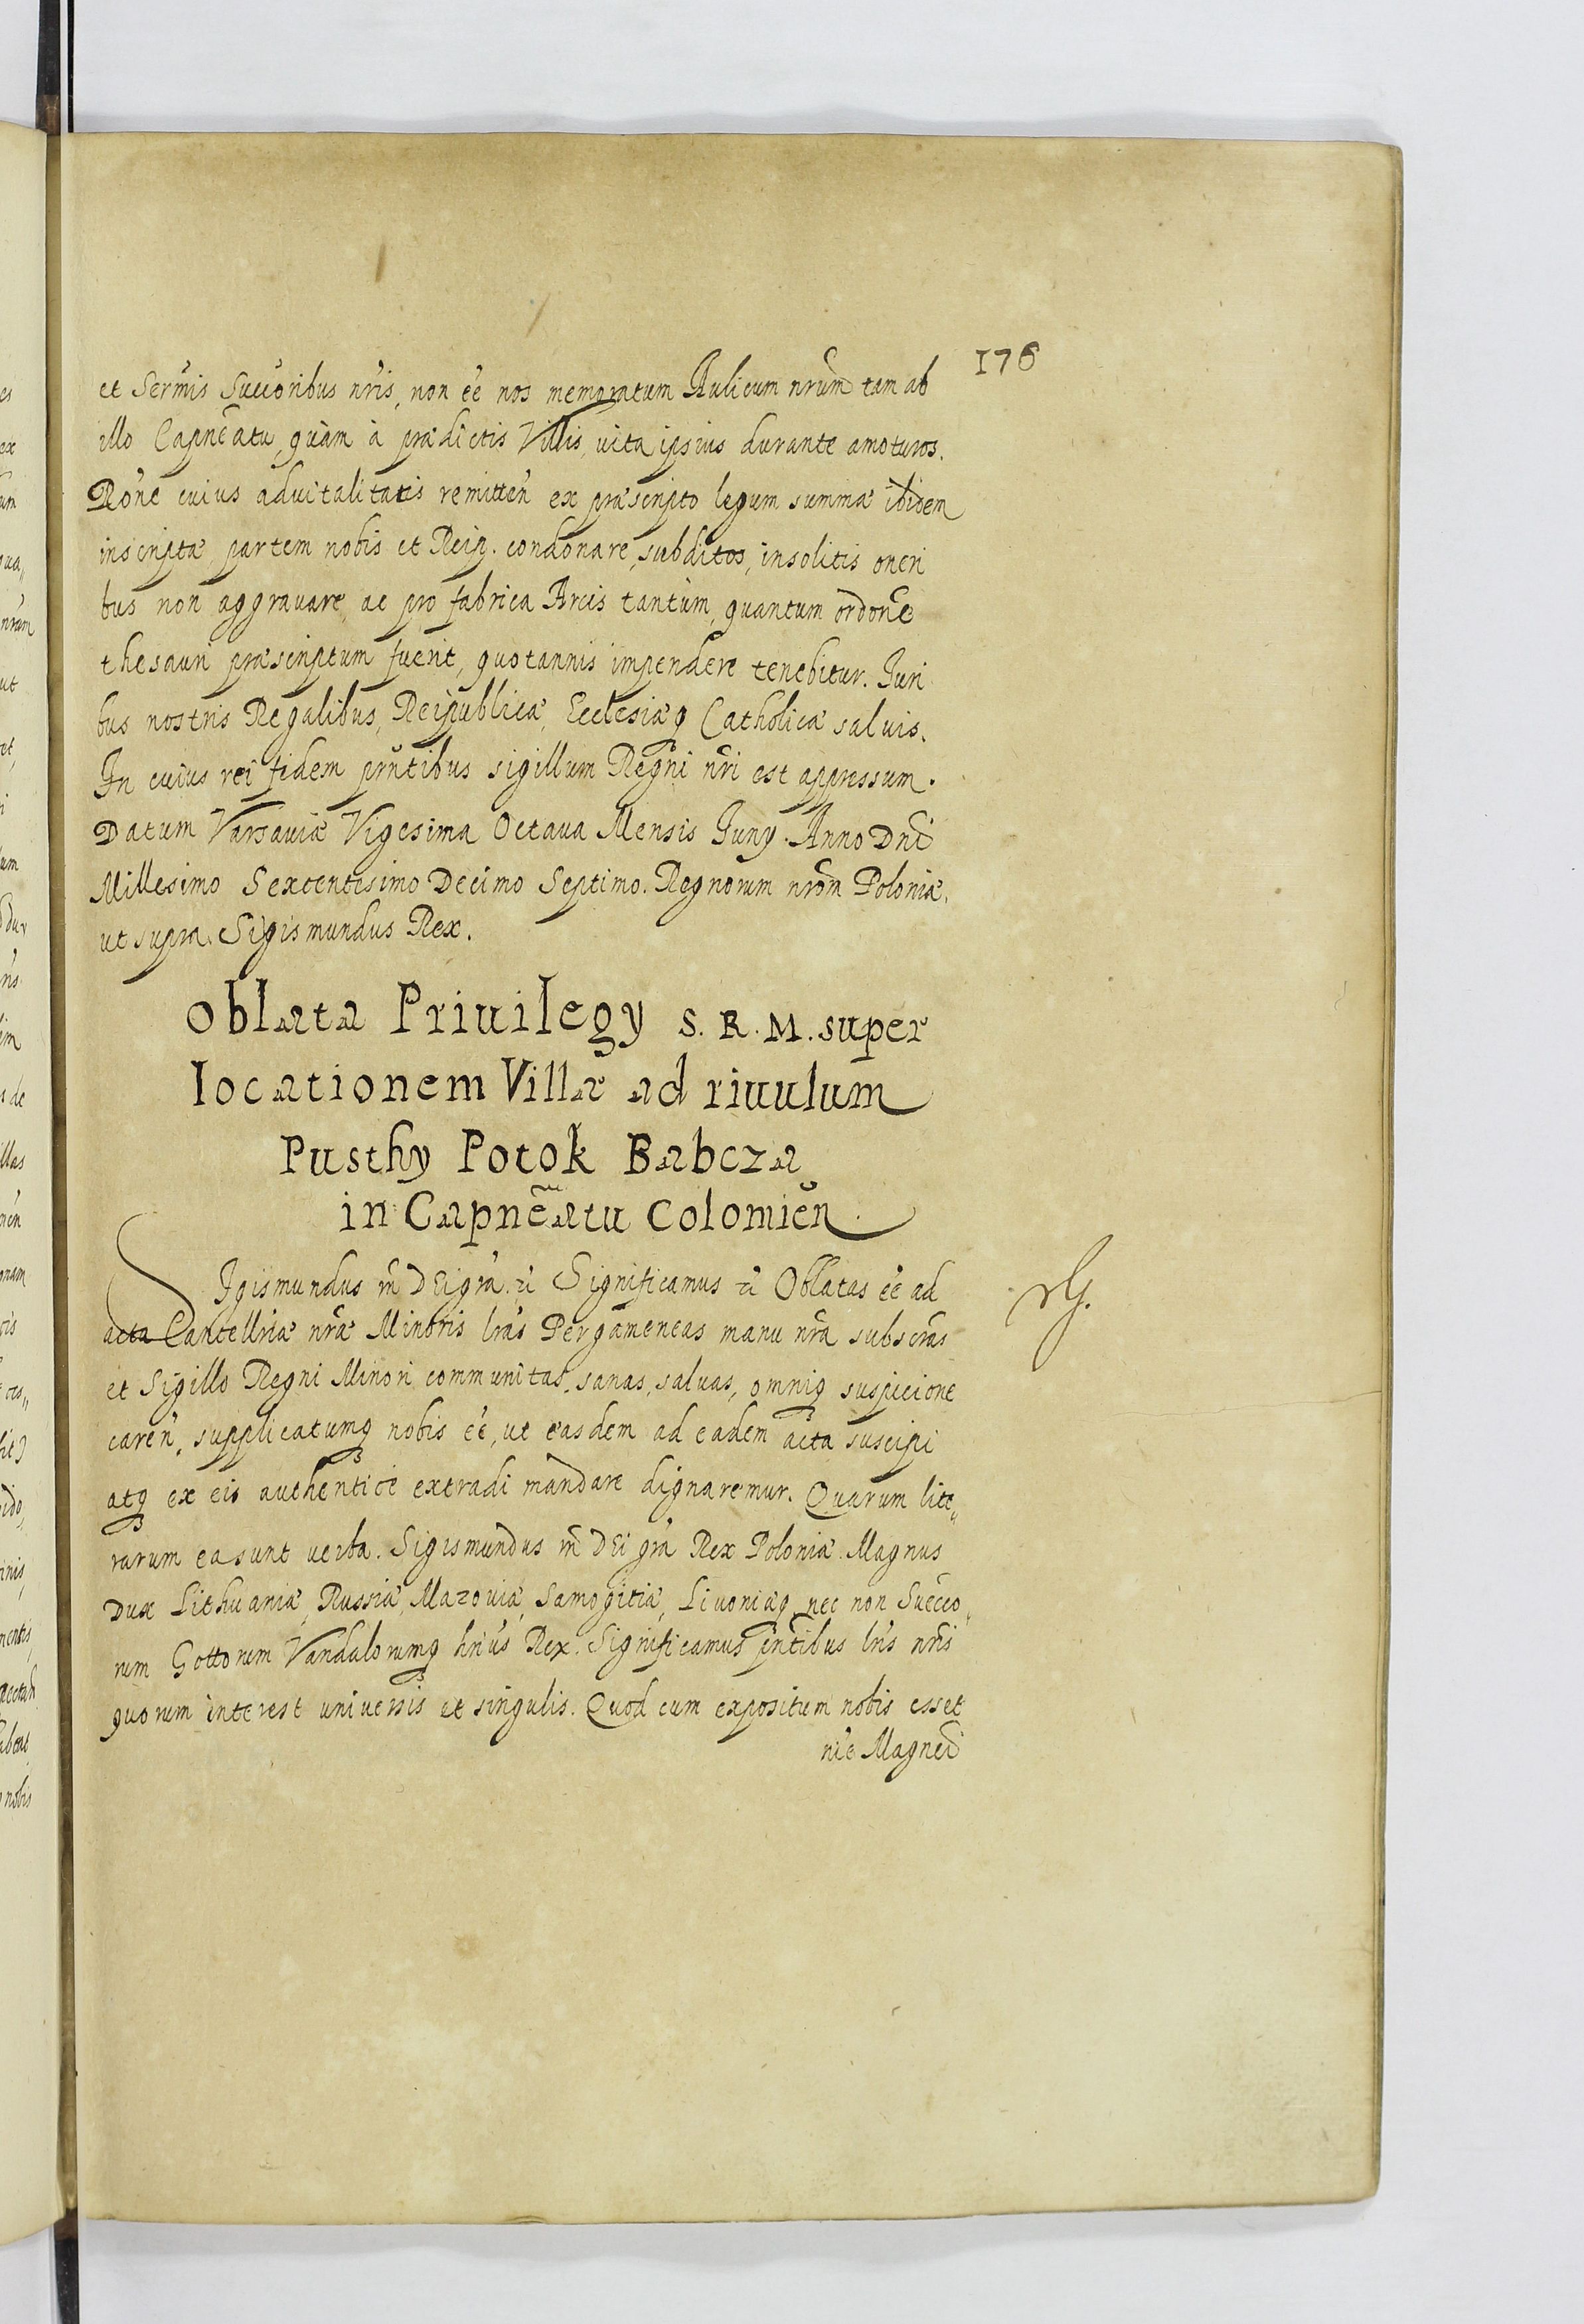 176
et Serm̃is Succoribus nr̃is, non ee nos memoratum Aulicum nrum̃ tam ab
illo Capneatu, quàm à prædictis Villis, vita ipsius durante amoturos.
Rõne cuius aduitalitatis remitteñ ex præscripto legum summæ ibidem
inscriptæ partem nobis et Reip. condonare, subditos, insolitis oneri
bus non aggrauare, ac pro fabrica Arcis tantùm, quantum ordoñe
thesauri præscriptum fuerit, quotannis impendere tenebitur. Juri
bus nostris Regalibus, Reipublicæ, Ecclesiæq Catholicæ saluis.
In cuius rei fidem prñtibus sigillum Regni nr̃i est appressum.
Datum Varsauiæ Vigesima Octaua Mensis Juny. Anno Dni
Millesimo Sexcentesimo Decimo Septimo. Regnorum nrõr Poloniæ,
ut supra. Sigismundus Rex.
Oblata Priuilegy S. R. M. super
locationem Villæ ad riuulum
Pusthy Potok Babcza
in Capnẽatu Colomieñ.
SIgismundus 3 DEi gra. Significamus Oblatas ee ad
acta Cancellriæ nr̃æ Minoris lras Pergameneas manu nrã subscras
et Sigillo Regni Minori communitas, sanas, saluas, omniq suspicione
careñ, supplicatumq nobis ee, ut easdem ad eadem acta suscipi
atq ex eis authentice extradi mandare dignaremur. Quarum lite„
rarum ea sunt verba. Sigismundus 3 DEi gra Rex Poloniæ Magnus
Dux Lithuaniæ, Russiæ, Mazouiæ, Samogitiæ, Liuoniæq, nec non Sueco„
rum Gottorum Vandalorumq hrius Rex. Significamus prñtibus lris nris
quorum interest uniuersis et singulis. Quod cum expositum nobis esset
nie Magnei